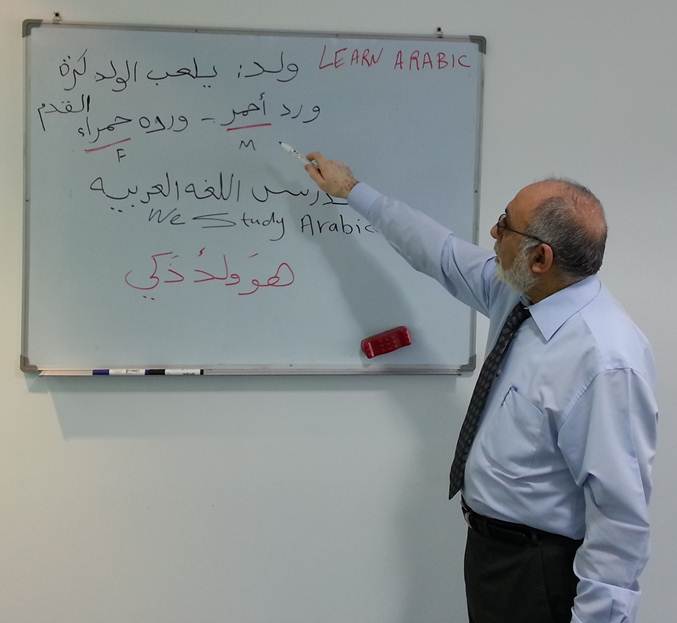 LEARN ARABIC
ولد: يلعب الولد كرة
القدم
ورد أحمر - ورده حمراء
M F
ندرس اللغه العربيه
We Study Arabic
هوَ ولدُ ذَكي